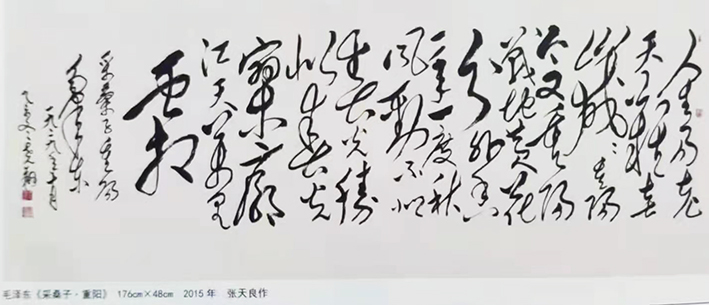 人生易老
天难老
岁岁重阳
今又重阳
战地黄花
分外香
一年一度秋
风劲不似
春光胜
似春光
寥廓
江天万里
霜
采桑子重阳
毛泽东
一九二九年十月
毛泽东《采桑子·重阳》 176cm×48cm 2015年 张天良作